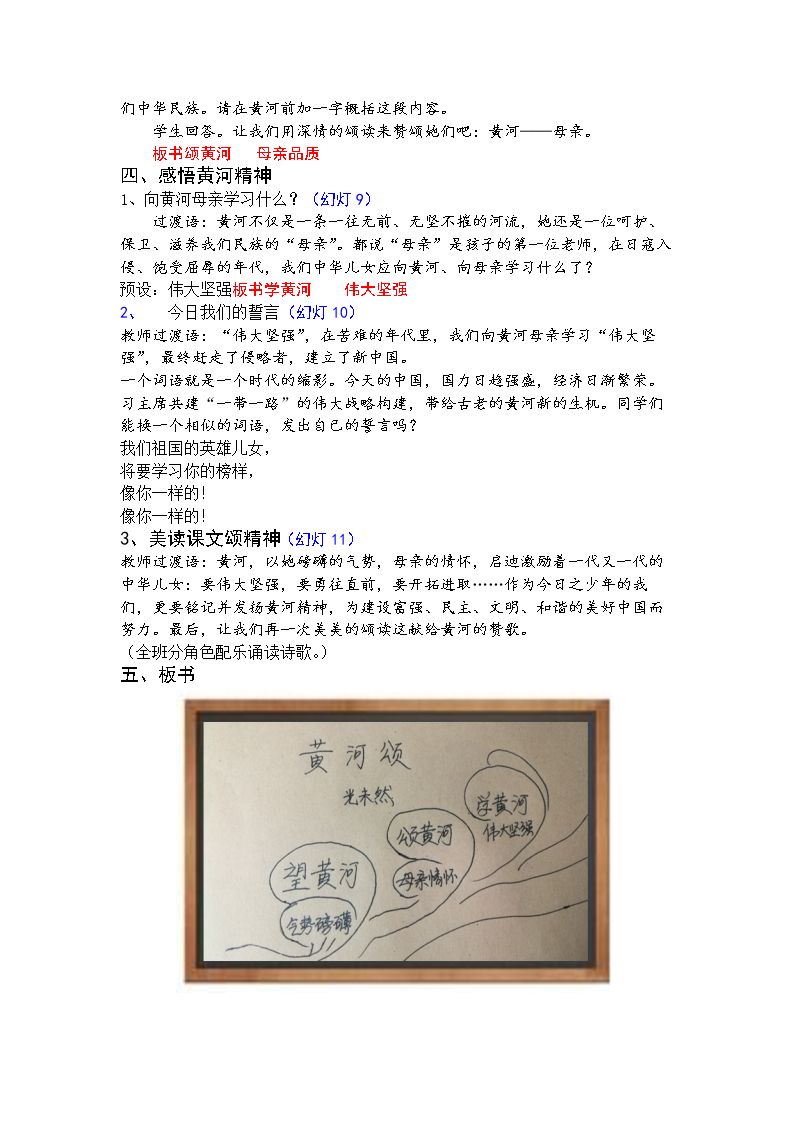 们中华民族。请在黄河前加一字概括这段内容。
学生回答。让我们用深情的颂读来赞颂她们吧：黄河——母亲。
板书颂黄河 母亲品质
四、感悟黄河精神
1、向黄河母亲学习什么？（幻灯9）
过渡语：黄河不仅是一条一往无前、无坚不摧的河流，她还是一位呵护、
保卫、滋养我们民族的“母亲”。都说“母亲”是孩子的第一位老师，在日寇入
侵、饱受屈辱的年代，我们中华儿女应向黄河、向母亲学习什么了？
预设：伟大坚强板书学黄河 伟大坚强
2、 今日我们的誓言（幻灯10）
教师过渡语：“伟大坚强”，在苦难的年代里，我们向黄河母亲学习“伟大坚
强”，最终赶走了侵略者，建立了新中国。
一个词语就是一个时代的缩影。今天的中国，国力日趋强盛，经济日渐繁荣。
习主席共建“一带一路”的伟大战略构建，带给古老的黄河新的生机。同学们
能换一个相似的词语，发出自己的誓言吗？
我们祖国的英雄儿女，
将要学习你的榜样，
像你一样的！
像你一样的！
3、美读课文颂精神（幻灯11）
教师过渡语：黄河，以她磅礴的气势，母亲的情怀，启迪激励着一代又一代的
中华儿女：要伟大坚强，要勇往直前，要开拓进取……作为今日之少年的我
们，更要铭记并发扬黄河精神，为建设富强、民主、文明、和谐的美好中国而
努力。最后，让我们再一次美美的颂读这献给黄河的赞歌。
（全班分角色配乐诵读诗歌。）
五、板书
黄河颂
光未然
学黄河
伟大坚强
颂黄河
母亲情怀
望黄河
气势磅礴